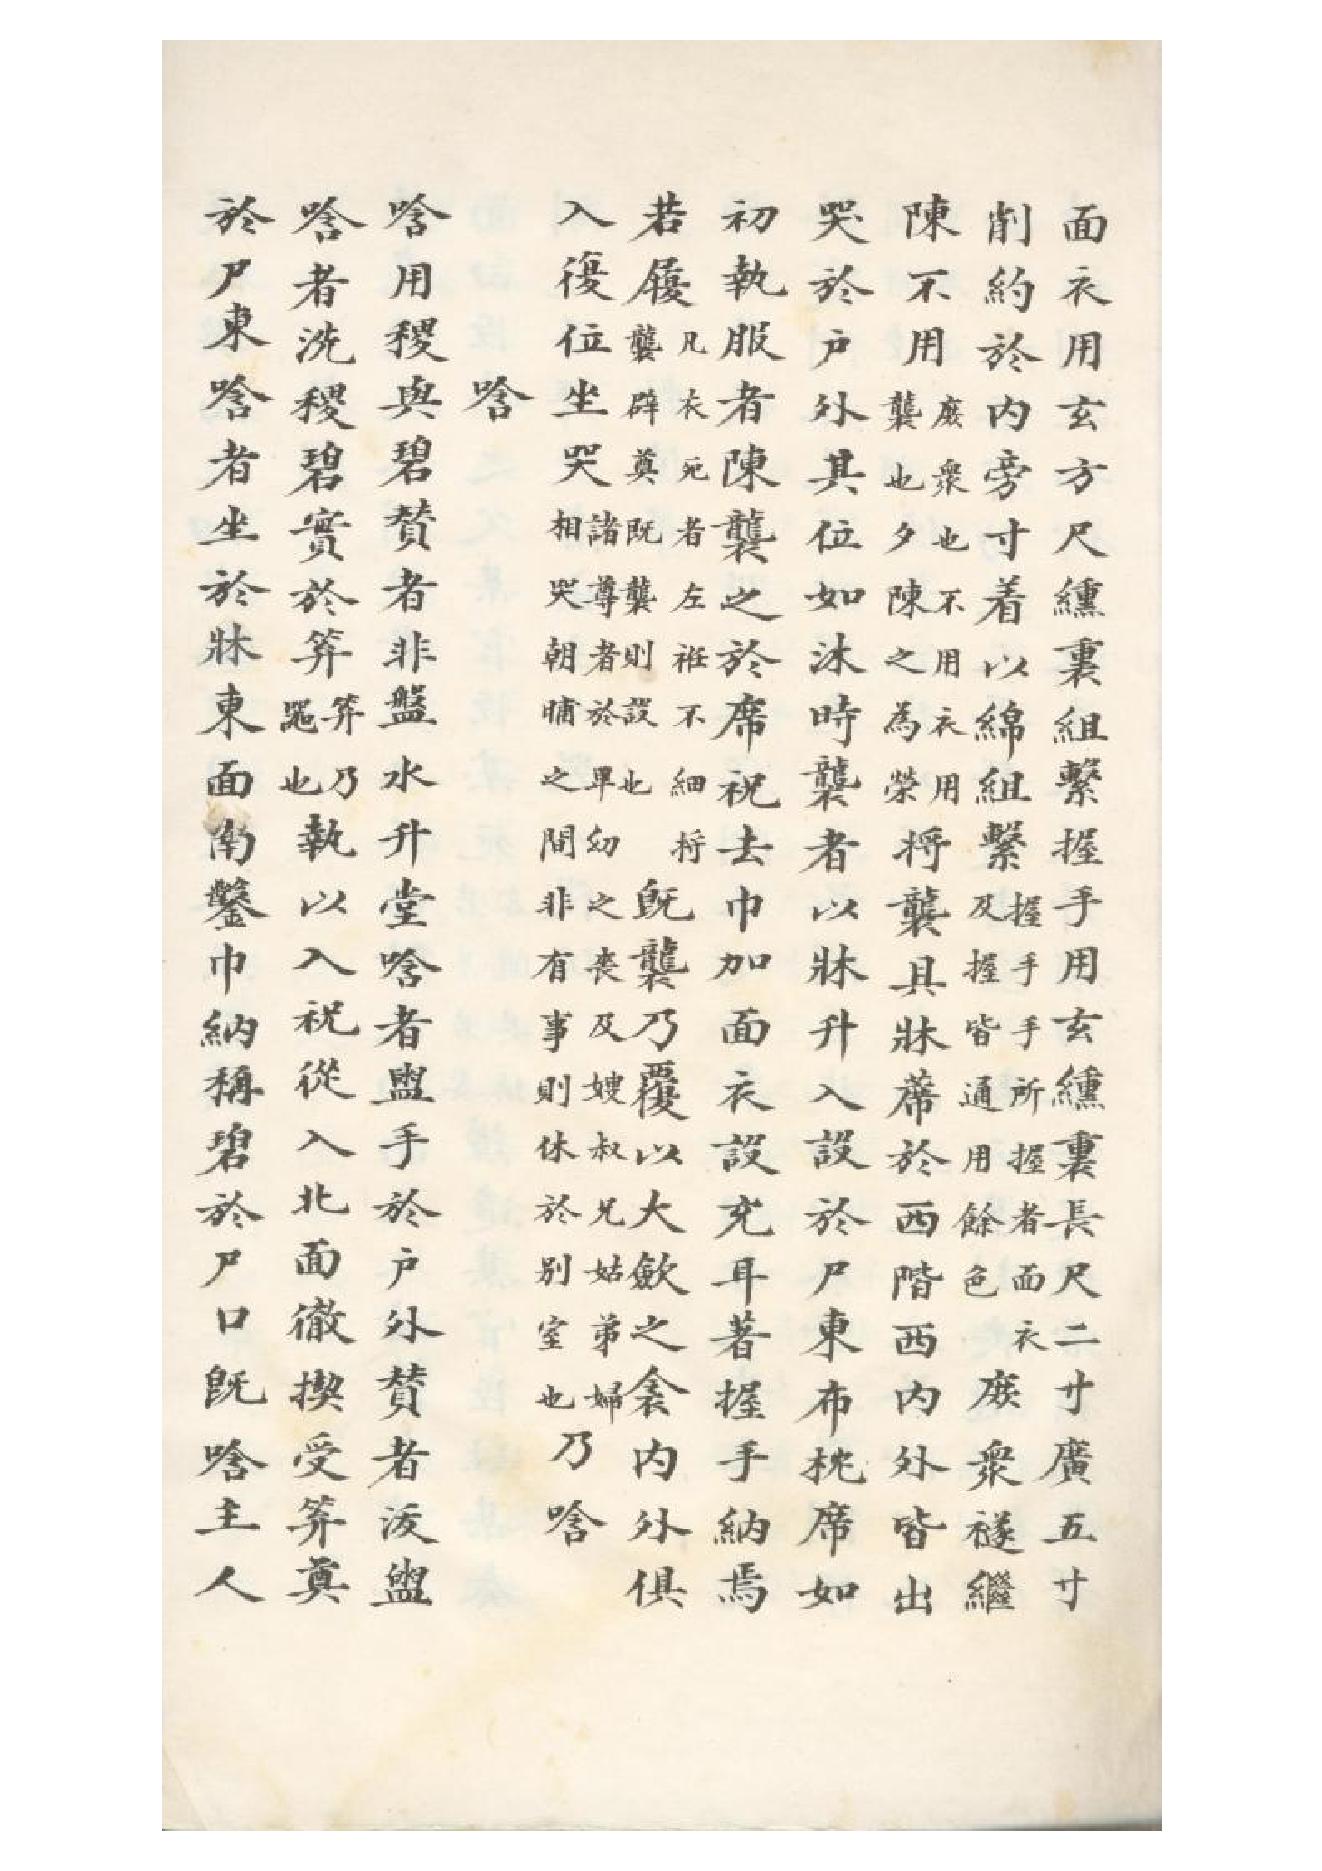 面衣用玄方尺纁裏組繫握手用玄纁裏長尺二寸廣五寸
削約於內旁寸着以綿組繫握手手所握者面衣及握皆通用餘色庻衆襚繼
陳不用庻衆也不用衣用襲也夕陳之為榮將襲具牀蓆於西階西內外皆出
哭於戶外其位如沐時襲者以牀升入設於尸東布枕席如
初執服者陳襲之於席祝去巾加面衣設充耳著握手納焉
若履凡衣死者左袵不紐將襲辟奠既襲則設也旣襲乃覆以大斂之衾內外俱
入復位坐哭諸尊者於卑幼之喪及嫂叔兄姑弟婦相哭朝晡之間非有事則休於別室也乃唅
唅
唅用稷與碧賛者非盤水升堂唅者盥手於戶外賛者沃盥
唅者洗稷碧實於筓筓乃篚也執以入祝從入北面徹揳受筓奠
於尸東唅者坐於牀東面南鑿巾納稱碧於尸口旣唅主人